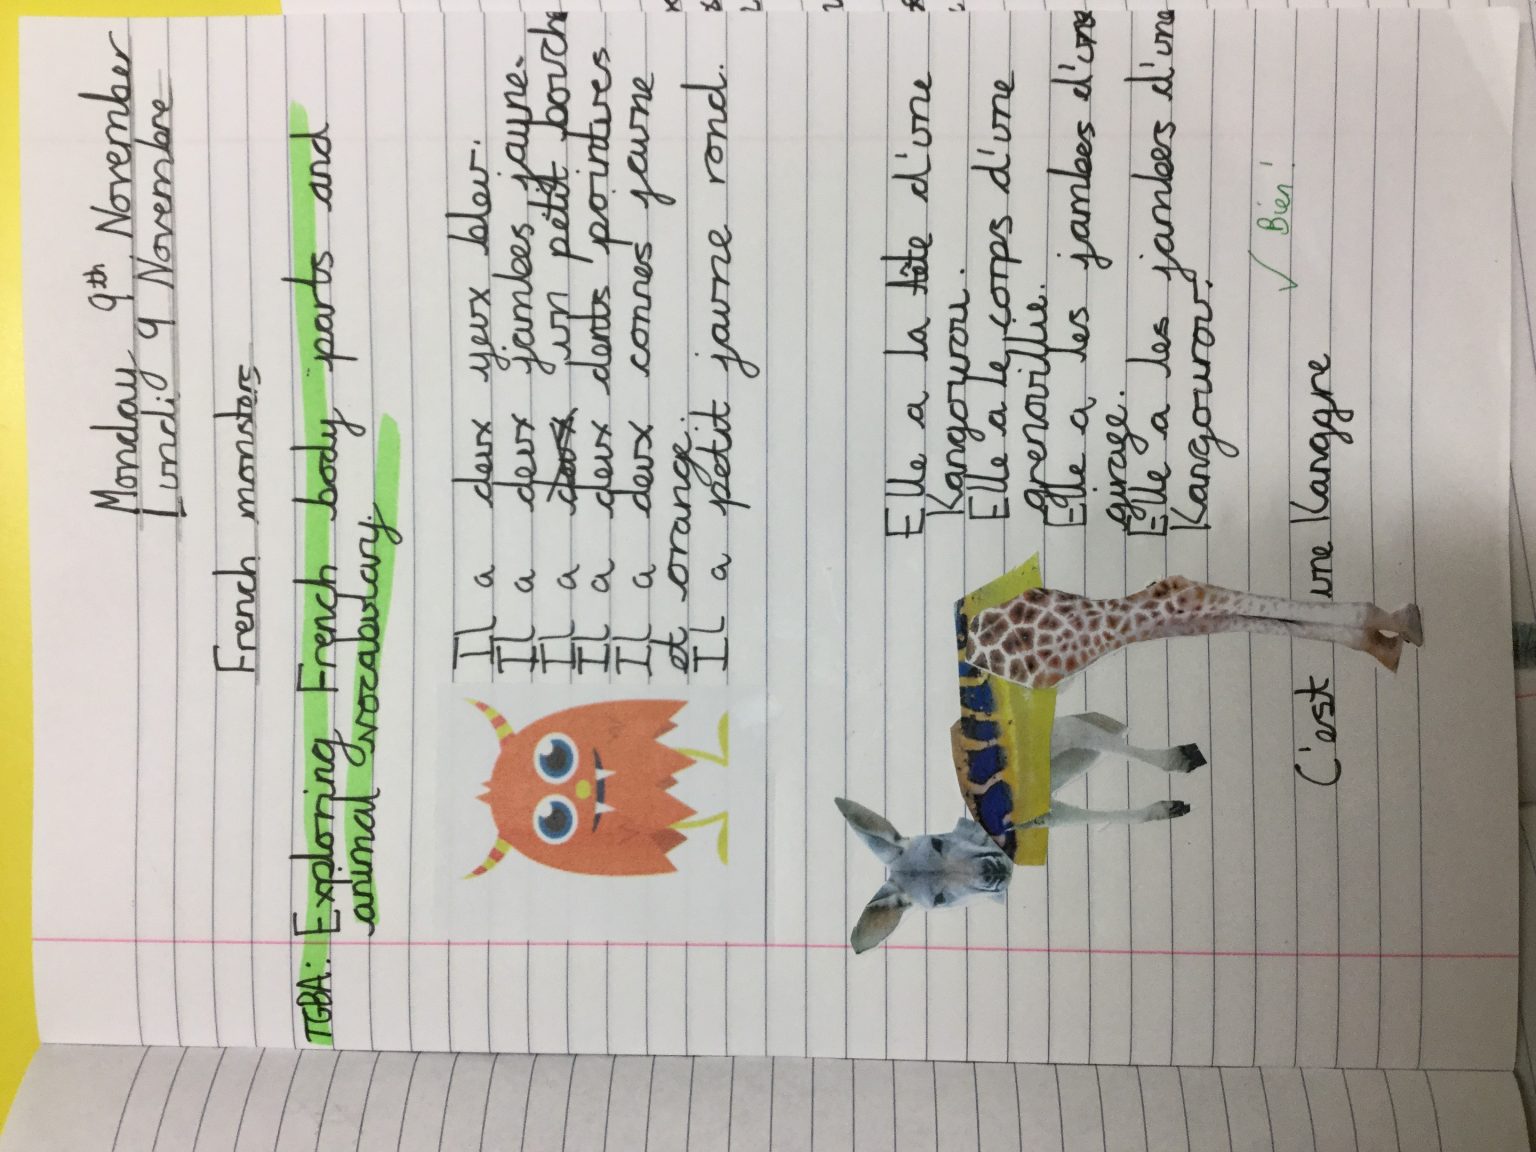 Monday 9th November
Lundi 9 Novembre
French monsters
TGBA: Exploring French body parts and
animal vocabulary.
Il a deux yeux bleu.
Il a deux jambes jayne.
Il a deux un petit bouche
Il a deux dents pointues
Il a deux cornes jaune
et orange.
Il a petit jaune rond.
Elle a la tête d'une
Kangourou.
Elle a le corps d'une
grenouillie.
Elle a les jambes d'une
girage.
Elle a les jambes d'une
Kangourou.
✓ Bien!
C'est une Kanggre